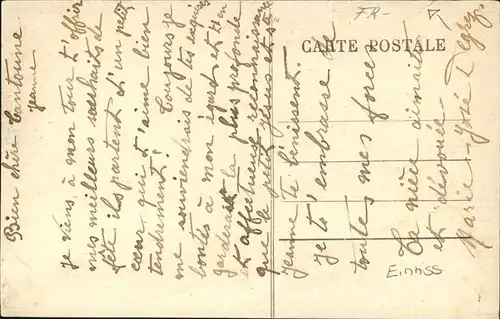 FR-
CARTE POSTALE
Bien chère Tantonne
Jeanne
je viens, à mon tour t'offrir
mes meilleurs souhaits de
fête ils partent d'un petit
cœur qui t'aime bien
tendrement! Toujours je
me souviendrais de tes
bontés à mon égard et t'en
garderai la plus profonde
et affectueuse reconnaissance
que le petit Jésus et Ste
Jeanne te bénissent.
Je t'embrasse de
toutes mes forces
Ta nièce aimante
et dévouée
Marie-José
Einriss